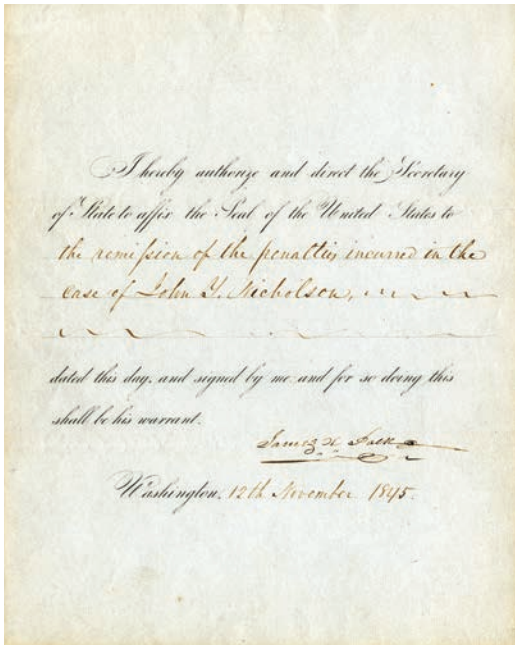 I hereby authorize and direct the Secretary
of State to affix the Seal of the United States to
the remission of the penalties incurred in the
case of John Y. Nicholson,
dated this day, and signed by me and for so doing this
shall be his warrant.
James K Polk
Washington, 12th November 1845.